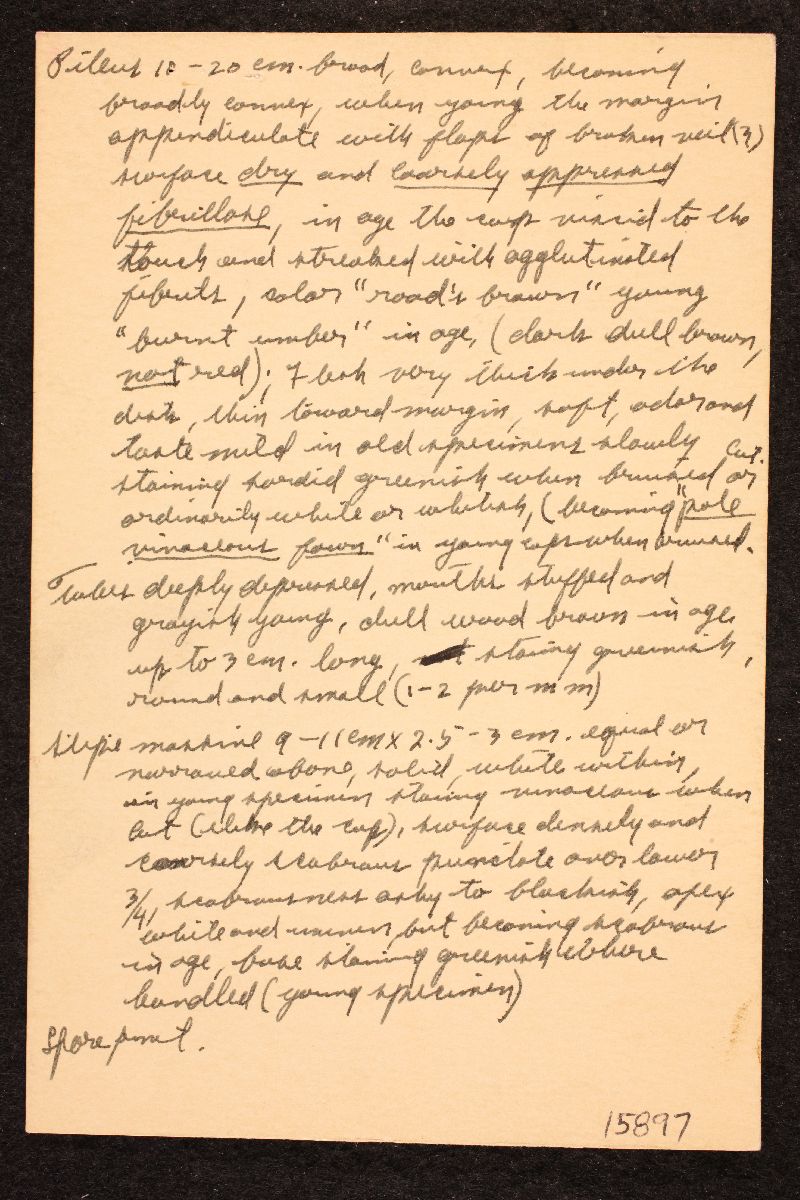 Pileus 10 - 20 cm. broad, convex, becoming
broadly convex, when young the margin
appendiculate with flaps of broken veil (?)
surface dry and coarsely appressed
fibrillose, in age the cap viscid to the
touch and streaked with agglutinated
fibrils, color "rood's brown" young
"burnt umber" in age, (dark dull brown,
not red); Flesh very thick under the
disk, thin toward margin, soft, odor and
taste mild in old specimens slowly
staining sordid greenish when bruised or cut.
ordinarily white or whitish, (becoming "pale
vinaceous fawn" in young caps when bruised.
Tubes deeply depressed, mouths stuffed and
grayish young, dull wood brown in age
up to 3 cm. long, staing greenish,
round and small (1-2 per mm)
Stipe massive 9 - 11 cm x 2.5 - 3 cm. equal or
narrowed above, solid, white within,
in young specimen staing vinaceous when
cut (like the cap), surface densely and
coarsely scabrous punctate over lower
3/4, scabrousness ashy to blackish, apex
white and uneven, but becoming scabrous
in age, base staining greenish where
handled (young specimen)
Spore print.
15897